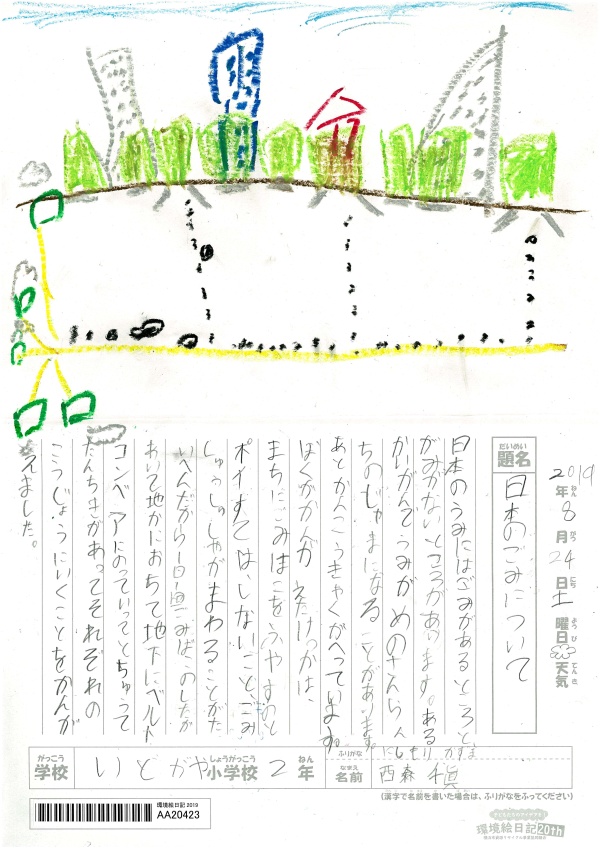 2019年8月24日土曜日 天気
ねん がつ にち ど ようび てんき
だいめい
題名
日本のごみについて
日本のうみにはごみがあるところと
ごみがないところがあります。ある
かいがんでうみがめのさんらん
ちのじゃまになることがあります。
あとかんこうきゃくがへっています。
ぼくがかんがえたけっかは、
まちにごみばこをふやすのと
ポイすてはしないことごみ
しゅうしゅしゃがまわることがた
いへんだから1日1回ごみばこのしたが
あいて地かにおちて地下にベルト
コンベアにのっていってとちゅうで
たんちきがあってそれぞれの
こうじょうにいくことをかんが
えました。
がっこう
学校
いとがや小学校2年
しょうがっこう
ねん
ふりがな
にしもり かずま
なまえ
名前
西森
(漢字で名前を書いた場合は、ふりがなをふってください)
環境絵日記 2019
AA20423
環境絵日記20th